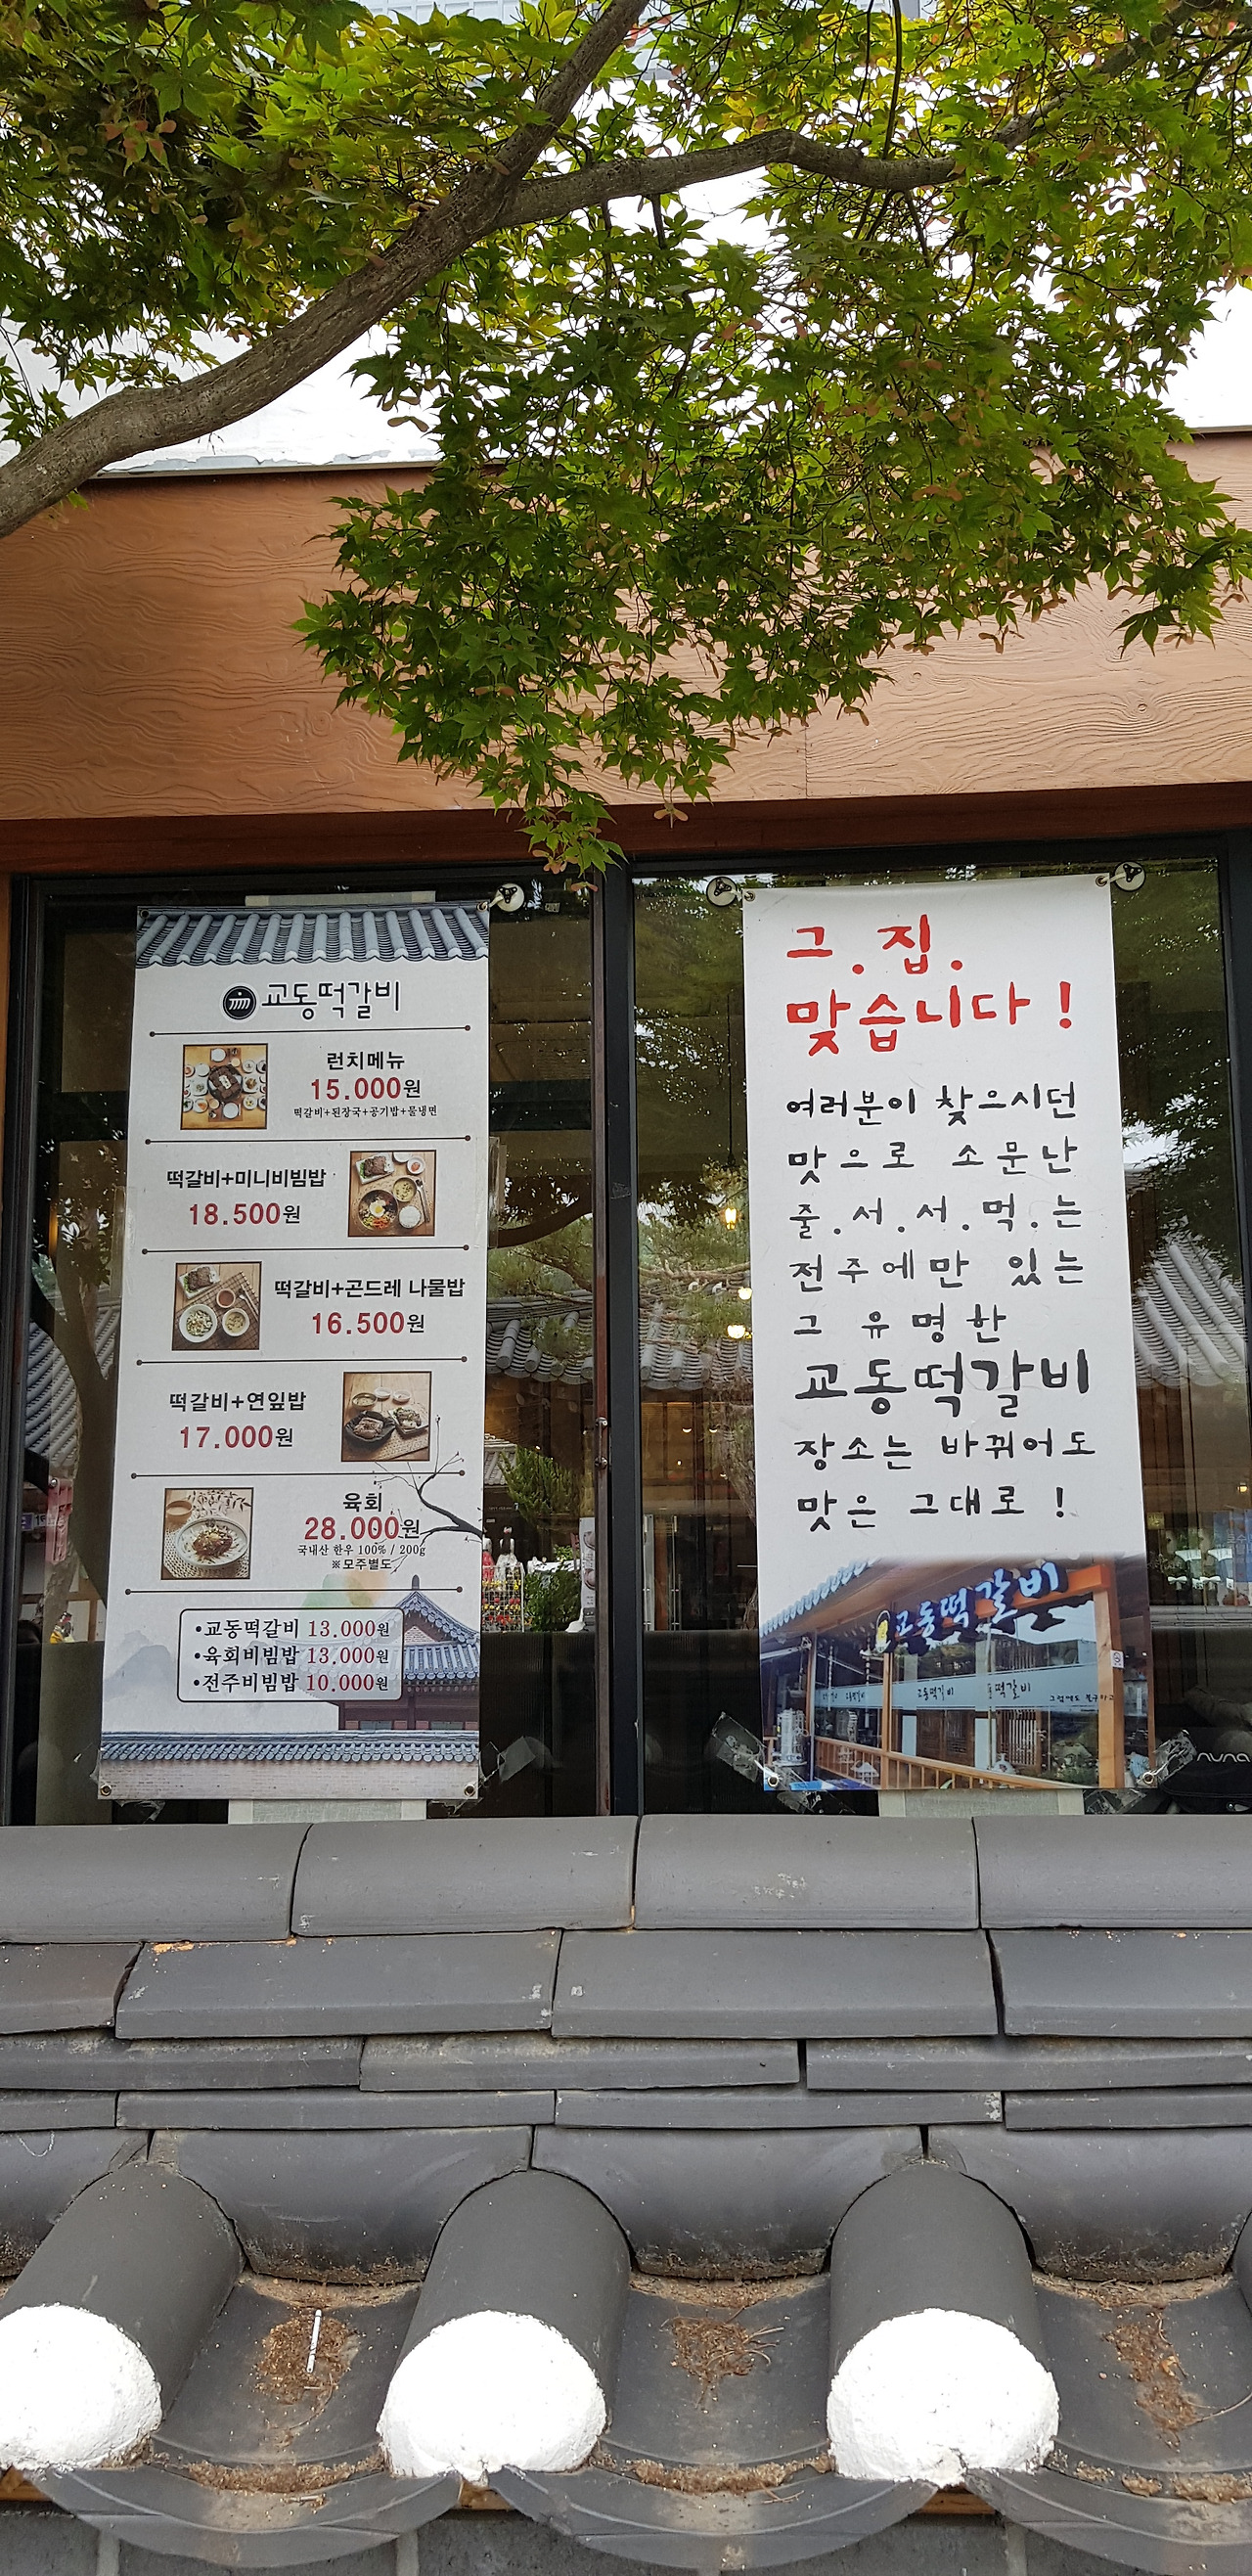 교동떡갈비
런치메뉴
15.000원
떡갈비+된장국+공기밥+물냉면
떡갈비+미니비빔밥
18.500원
떡갈비+곤드레 나물밥
16.500원
떡갈비+연잎밥
17.000원
육회
28.000원
국내산 한우 100% / 200g
※모주별도
•교동떡갈비 13.000원
•육회비빔밥 13.000원
•전주비빔밥 10.000원
그.집.
맞습니다!
여러분이 찾으시던
맛으로 소문난
줄.서.서.먹.는
전주에만 있는
그 유명한
교동떡갈비
장소는 바뀌어도
맛은 그대로!
교동떡갈비
교동떡갈비
떡갈비
nuna